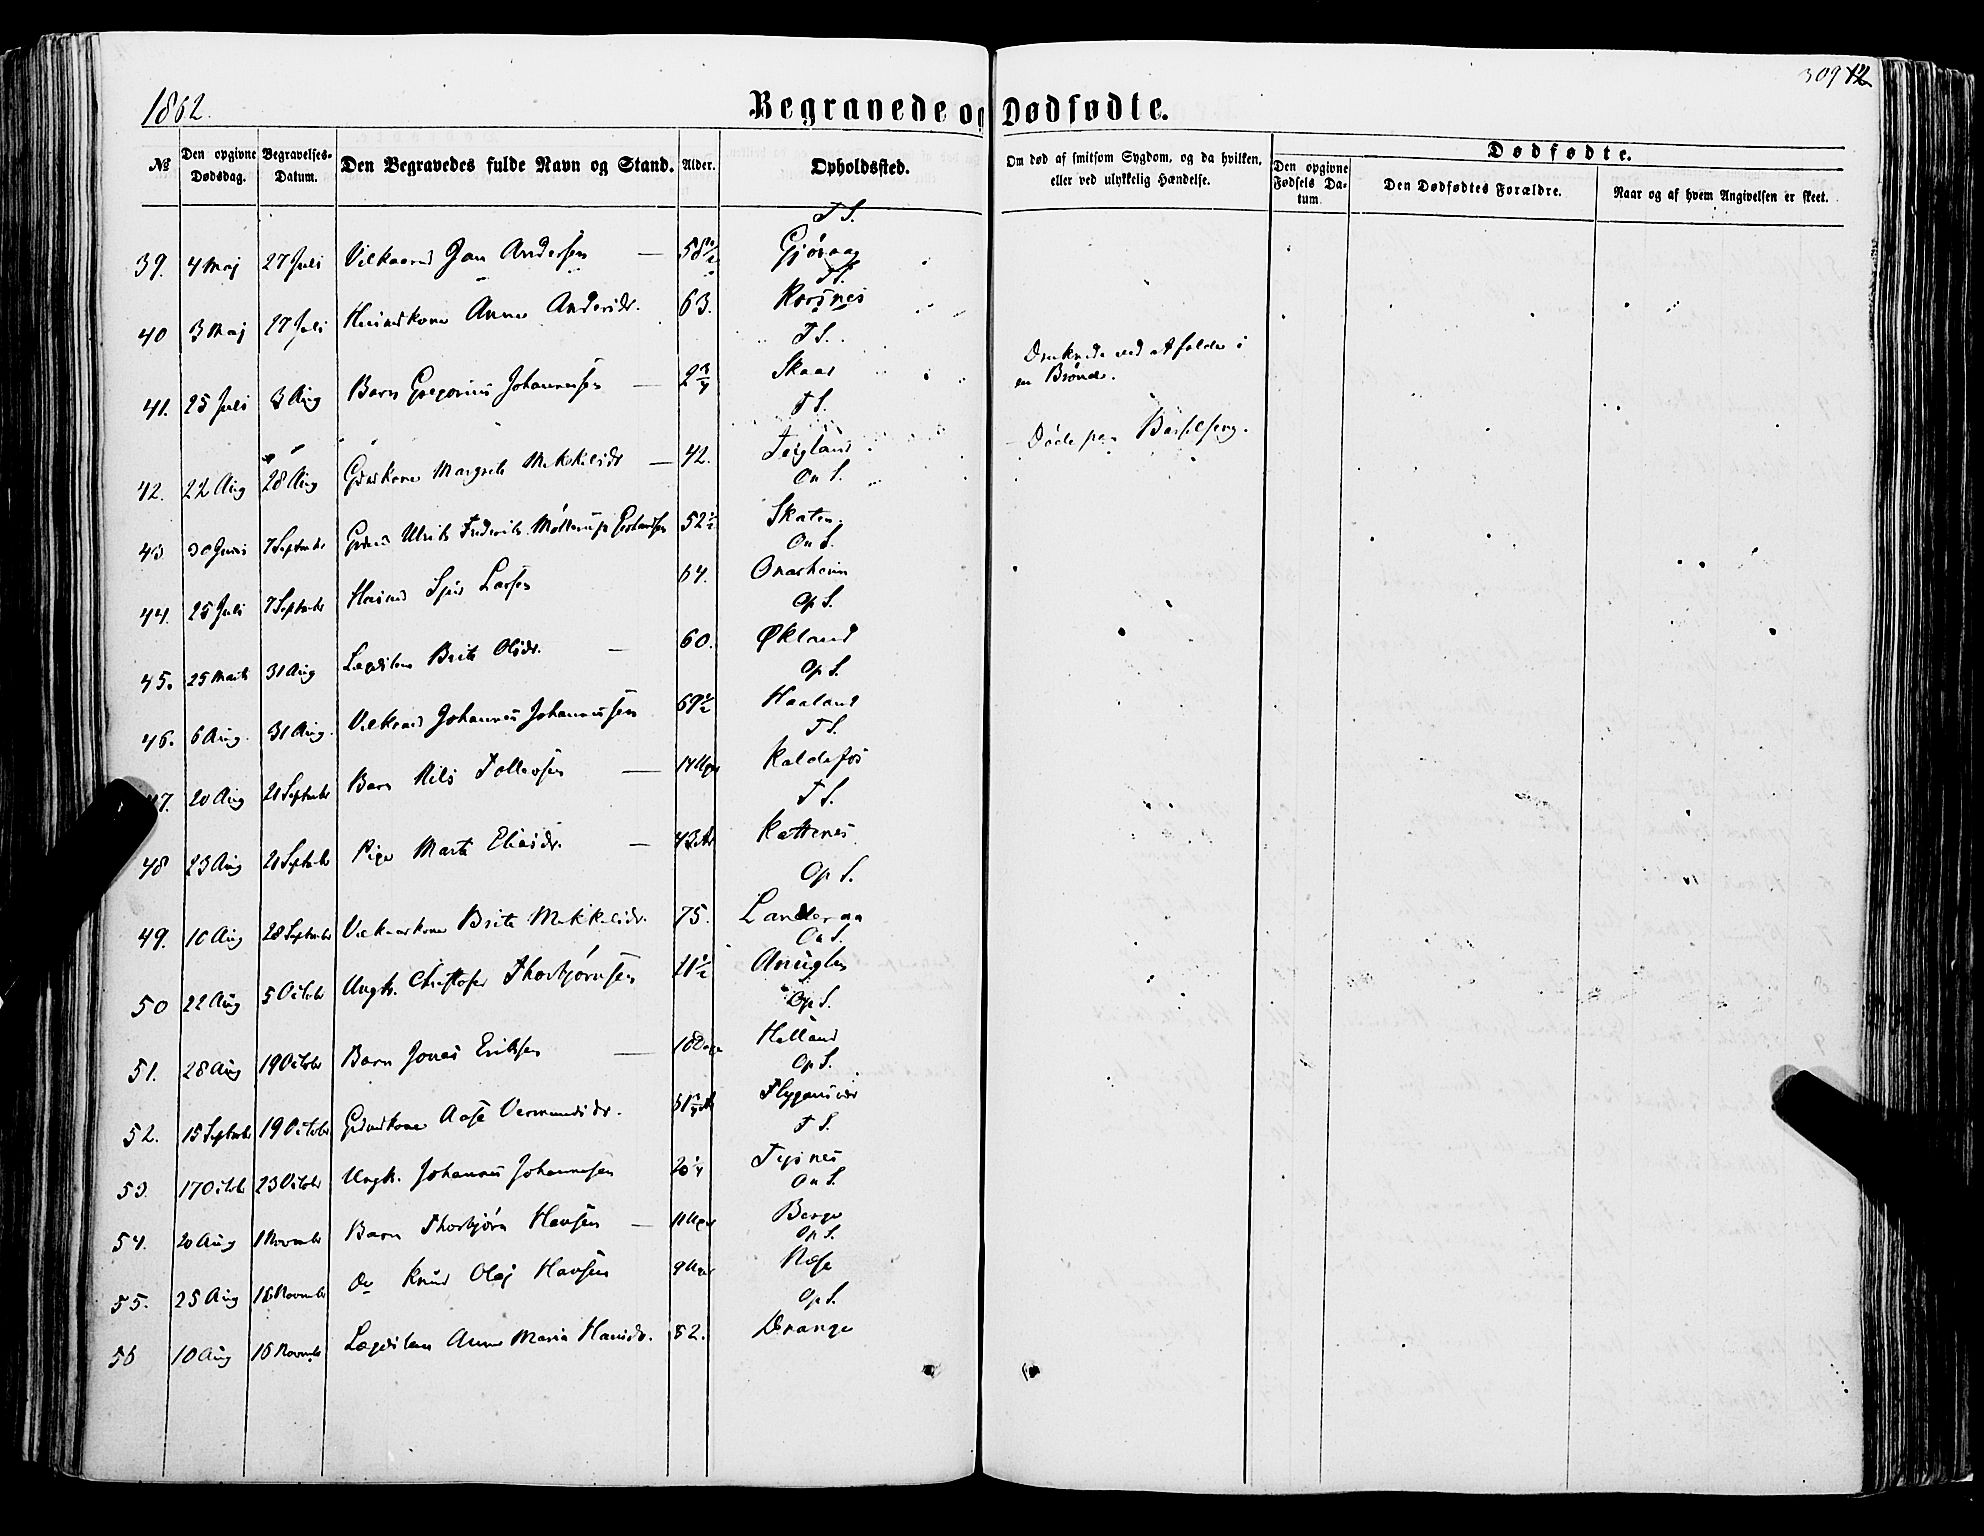 1862.
Begravede og Dødfødte.
309 12
№
Den opgivne Dødsdag.
Begravelses-Datum.
Den Begravedes fulde Navn og Stand.
Alder.
Opholdssted.
Om død af smitsom Sygdom, og da hvilken, eller ved ulykkelig Hændelse.
Dødfødte.
Den opgivne Fødsels Da-tum
Den Dødfødtes Forældre.
Naar og af hvem Angivelsen er skeet.
T S.
39. 4 Maj 27 Juli Vilkaard Jan Andersen — 58 1/2 Gjøvaag
T S.
40 3 Maj 27 Juli Huusmdkone Anne Andersdr. 63. Korsnes
T S.
41. 25 Juli 3 Aug Barn Gregorius Johannessen — 2 3/4 Skaar Druknede ved at falde i en Brønd.
T S.
42. 22 Aug 28 Aug Grdmdkone Margrete Mikkelsdr — 42. Teigland Døde paa Barselseng.
On S.
43 30 Juni 7 September Ulrik Frederik Møllerup 52 1/2 Skaten
On S.
44. 25 Juli 7 September Husmd Sjur Larsen 64. Onarheim
Op S.
45. 25 Marts 31 Aug Lægdslem Brite Olsdr. — 60. Økland
Op S.
46. 6 Aug. 31 Aug. Vilkaard Johannes Johannessen 69 1/2 Haaland
T S.
47. 20 Aug 21 September Barn Nils Tollevsen — 14 Uger Kaldefos
T S.
48 23 Aug 21 September Pige Marta Eliasdr. — 43 Ar Kattenes
Op S.
49. 10 Aug 28 September Vilkaarkone Brite Mikkelsdr. 75. Landeraa
On S.
50 22 Aug 5 October Ungk. Christofer Thorbjørnsen 21 1/2 Anuglen
Op S.
51. 28 Aug 19 October Barn Jonas Eriksen — 18 Dage Helland
Op S.
52. 15 September 19 October Grdmdkone Aase Vermundsdr. Flygansvær
T S.
53. 17 Octob 23 October Ungk. Johannes Johannessen 20 1/4 Tysnes
On S.
54. 20 Aug 1 November Barn Thorbjørn Hansen — 11 Uger Berge
Op S.
55. 25 Aug 16 November Do Knud Olaj Hansen 9 Uger Næse
Op S.
56 10 Aug 16 November Lægdslem Anne Maria Hansdr. 82. Drange